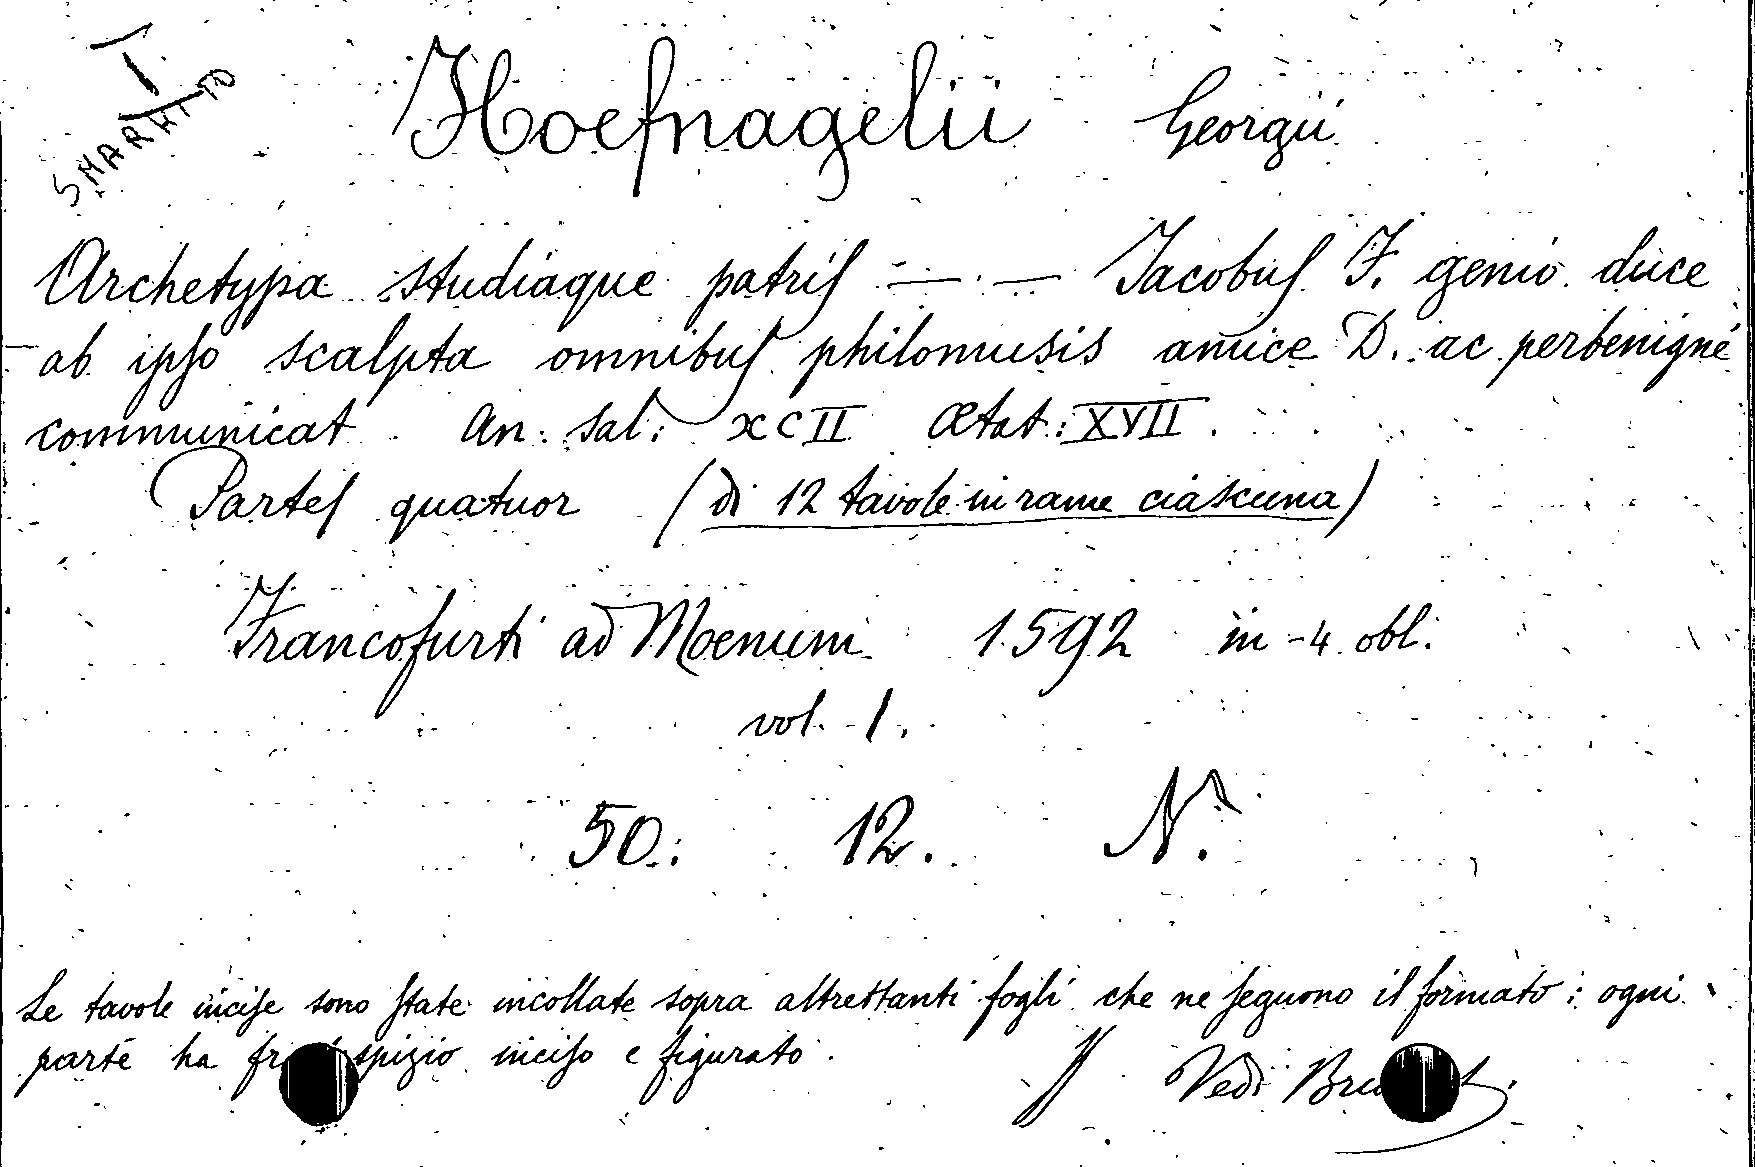 T.
SMARRITO
Hoefnagelii Georgii
Archetypa studiaque patris — — Jacobus F. genio duce
ab ipso scalpta omnibus philomusis amice D. ac perbenigne
communicat An: sal: XCII Ætat: XVII.
Partes quatuor (di 12 tavole in rame ciascuna)
Francofurti ad Moenum 1592 in-4 obl:
vol. 1.
50. 12. N.
Le tavole incise sono state incollate sopra altrettanti fogli che ne seguono il formato: ogni
parte ha inciso e figurato.
Vedi